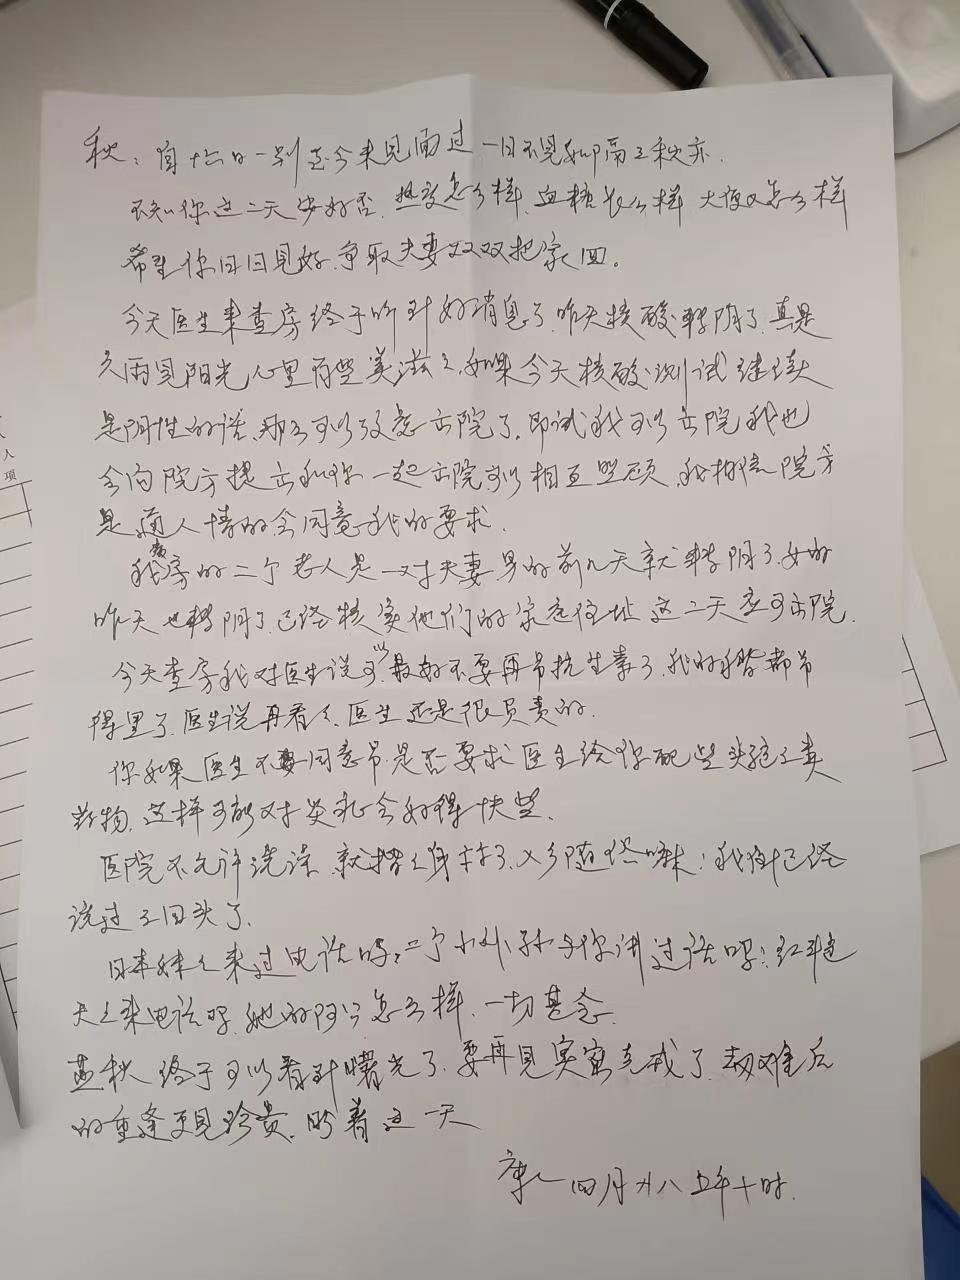 秋：自十六日一别至今未见面过一日不见如隔三秋亦.
不知你这二天安好否.热度怎么样.血糖怎么样 大便又怎么样
希望你日日见好.争取夫妻双双把家回。
今天医生来查房终于听到好消息了.昨天核酸转阴了.真是
久雨见阳光心里有些美滋々.如果今天核酸测试继续
是阴性的话.那么可以考虑出院了.即试我可以出院我也
会向院方提出和你一起出院可以相互照顾.我相信院方
是通人情的会同意我的要求.
我病房的二个老人是一对夫妻男的前几天就转阴了.女的
昨天也转阴了.已经核实他们的家庭住址 这二天应可出院.
今天查房我对医生说可以最好不要再吊抗生素了.我的手臂都吊
得里了.医生说再看々.医生还是很负责的.
你如果医生不同意吊.是否要求医生给你配些头孢之类
药物.这样可能对炎症会好得快些.
医院不允许洗澡.就揩々身对了.入乡随俗嘛：我估已经
说过三回头了.
日本妹々来过电话吗？二个小外孙与你讲过话吗：红
天々来电话吗.她的阿公怎么样.一切甚念.
秋 终于可以看到曙光了.要再见实宻克戒了.劫难后
的重逢更见珍贵.盼着这一天
康 四月廿八上午十时.
人
项